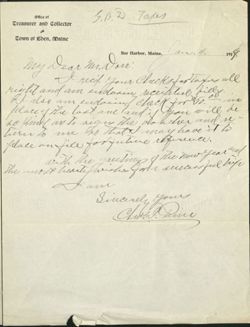 G.B.D. Taxes
Office of
Treasurer and Collector
Town of Eden, Maine
Bar Harbor, Maine, Jan 4 191
My Dear Mr. Dorr:
I rec'd your checks for taxes all
right and am enclosing receipted bills
I also am enclosing check for in
place of the last one if you will be
so kind as to sign the and re-
turn to me so that I may have it to
place on file for future reference.
With the greetings of the new year and
the most hearty wishes for your successful life
I am
Sincerely Yours